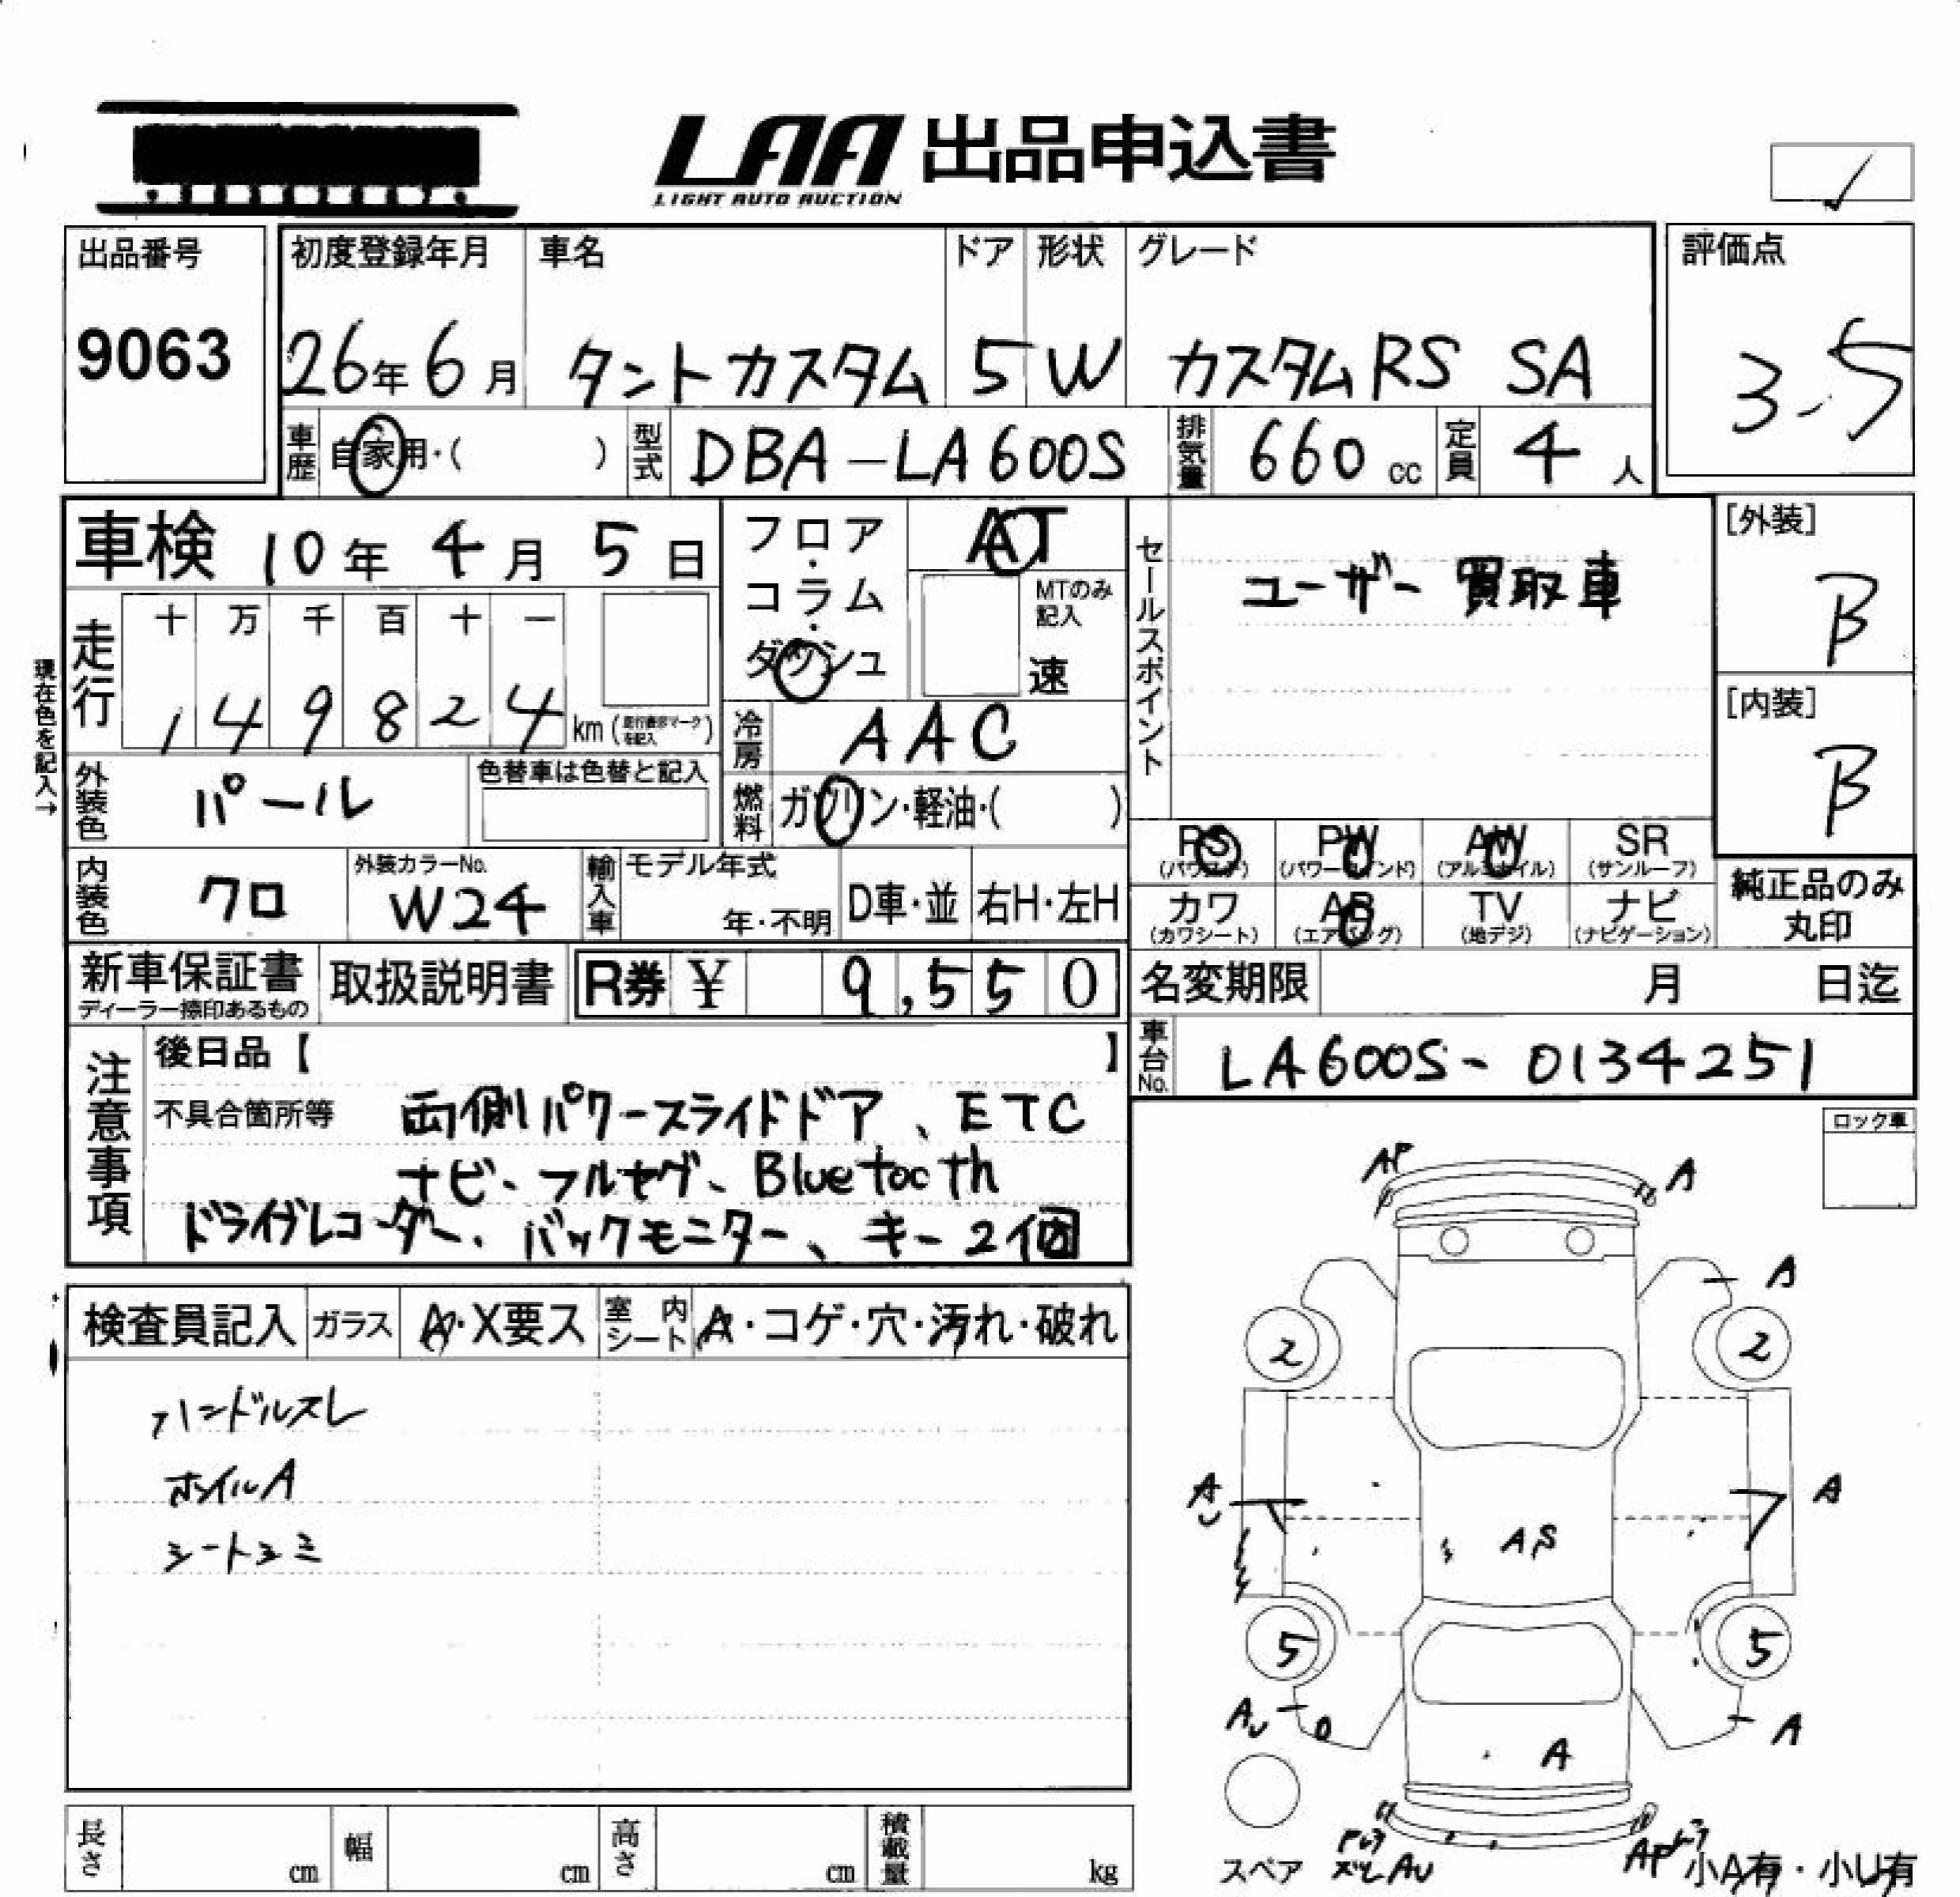 LAA 出品申込書
LIGHT AUTO AUCTION
出品番号
9063
初度登録年月
26年 6月
車名
タントカスタム
ドア
5
形状
W
グレード
カスタムRS SA
評価点
3.5
車歴 自家用・( )
型式 DBA-LA600S
排気量 660 cc
定員 4 人
車検 10年 4月 5日
現在色を記入→
走行
十 万 千 百 十 一
1 4 9 8 2 4 km
フロア・コラム・ダッシュ
AT
MTのみ記入
速
冷房 AAC
燃料 ガソリン・軽油・( )
セールスポイント
ユーザー買取車
[外装]
B
[内装]
B
外装色 パール
色替車は色替と記入
内装色 クロ
外装カラーNo.
W24
輸入車
モデル年式
年・不明
D車・並
右H・左H
PS (パワステ)
PW (パワーウインド)
AW (アルミホイル)
SR (サンルーフ)
カワ (カワシート)
AB (エアバッグ)
TV (地デジ)
ナビ (ナビゲーション)
純正品のみ丸印
新車保証書
ディーラー捺印あるもの
取扱説明書
R券 ¥ 9,550
名変期限 月 日迄
車台No. LA600S-0134251
注意事項
後日品【 】
不具合箇所等 両側パワースライドドア、ETC
ナビ、フルセグ、Bluetooth
ドライブレコーダー、バックモニター、キー2個
ロック車
検査員記入
ガラス A・X要ス
室内シート A・コゲ・穴・汚れ・破れ
ハンドルスレ
ホイルA
シートシミ
AP A
A
2 2
A A
U
AS
5 5
AU A
A
スペア
ズレ AU
AP
小A有・小U有
長さ cm
幅 cm
高さ cm
積載量 kg